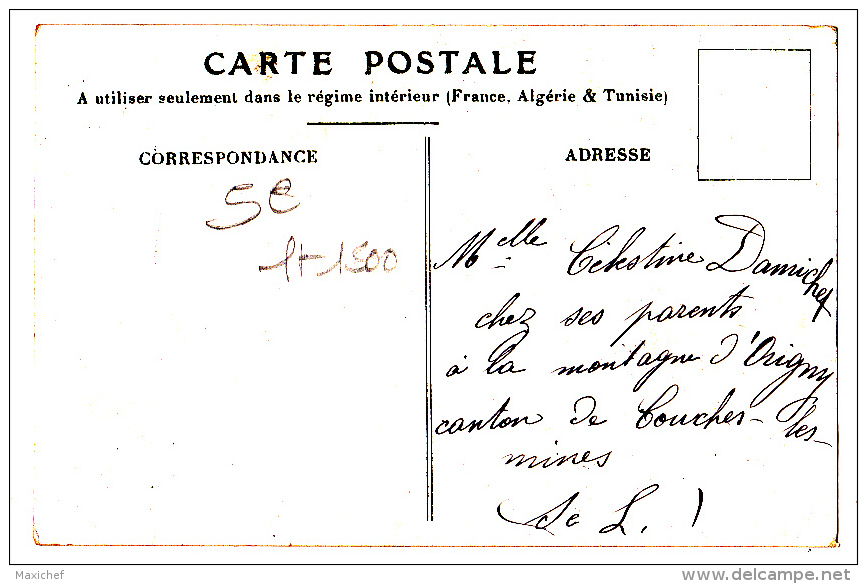 CARTE POSTALE
A utiliser seulement dans le régime intérieur (France, Algérie & Tunisie)
CORRESPONDANCE
5e
1+1500
ADRESSE
Melle Célestine Damichel
chez ses parents
à la montagne d'Origny
canton de Couches-les-
mines
S et L.
Maxichef
www.delcampe.net